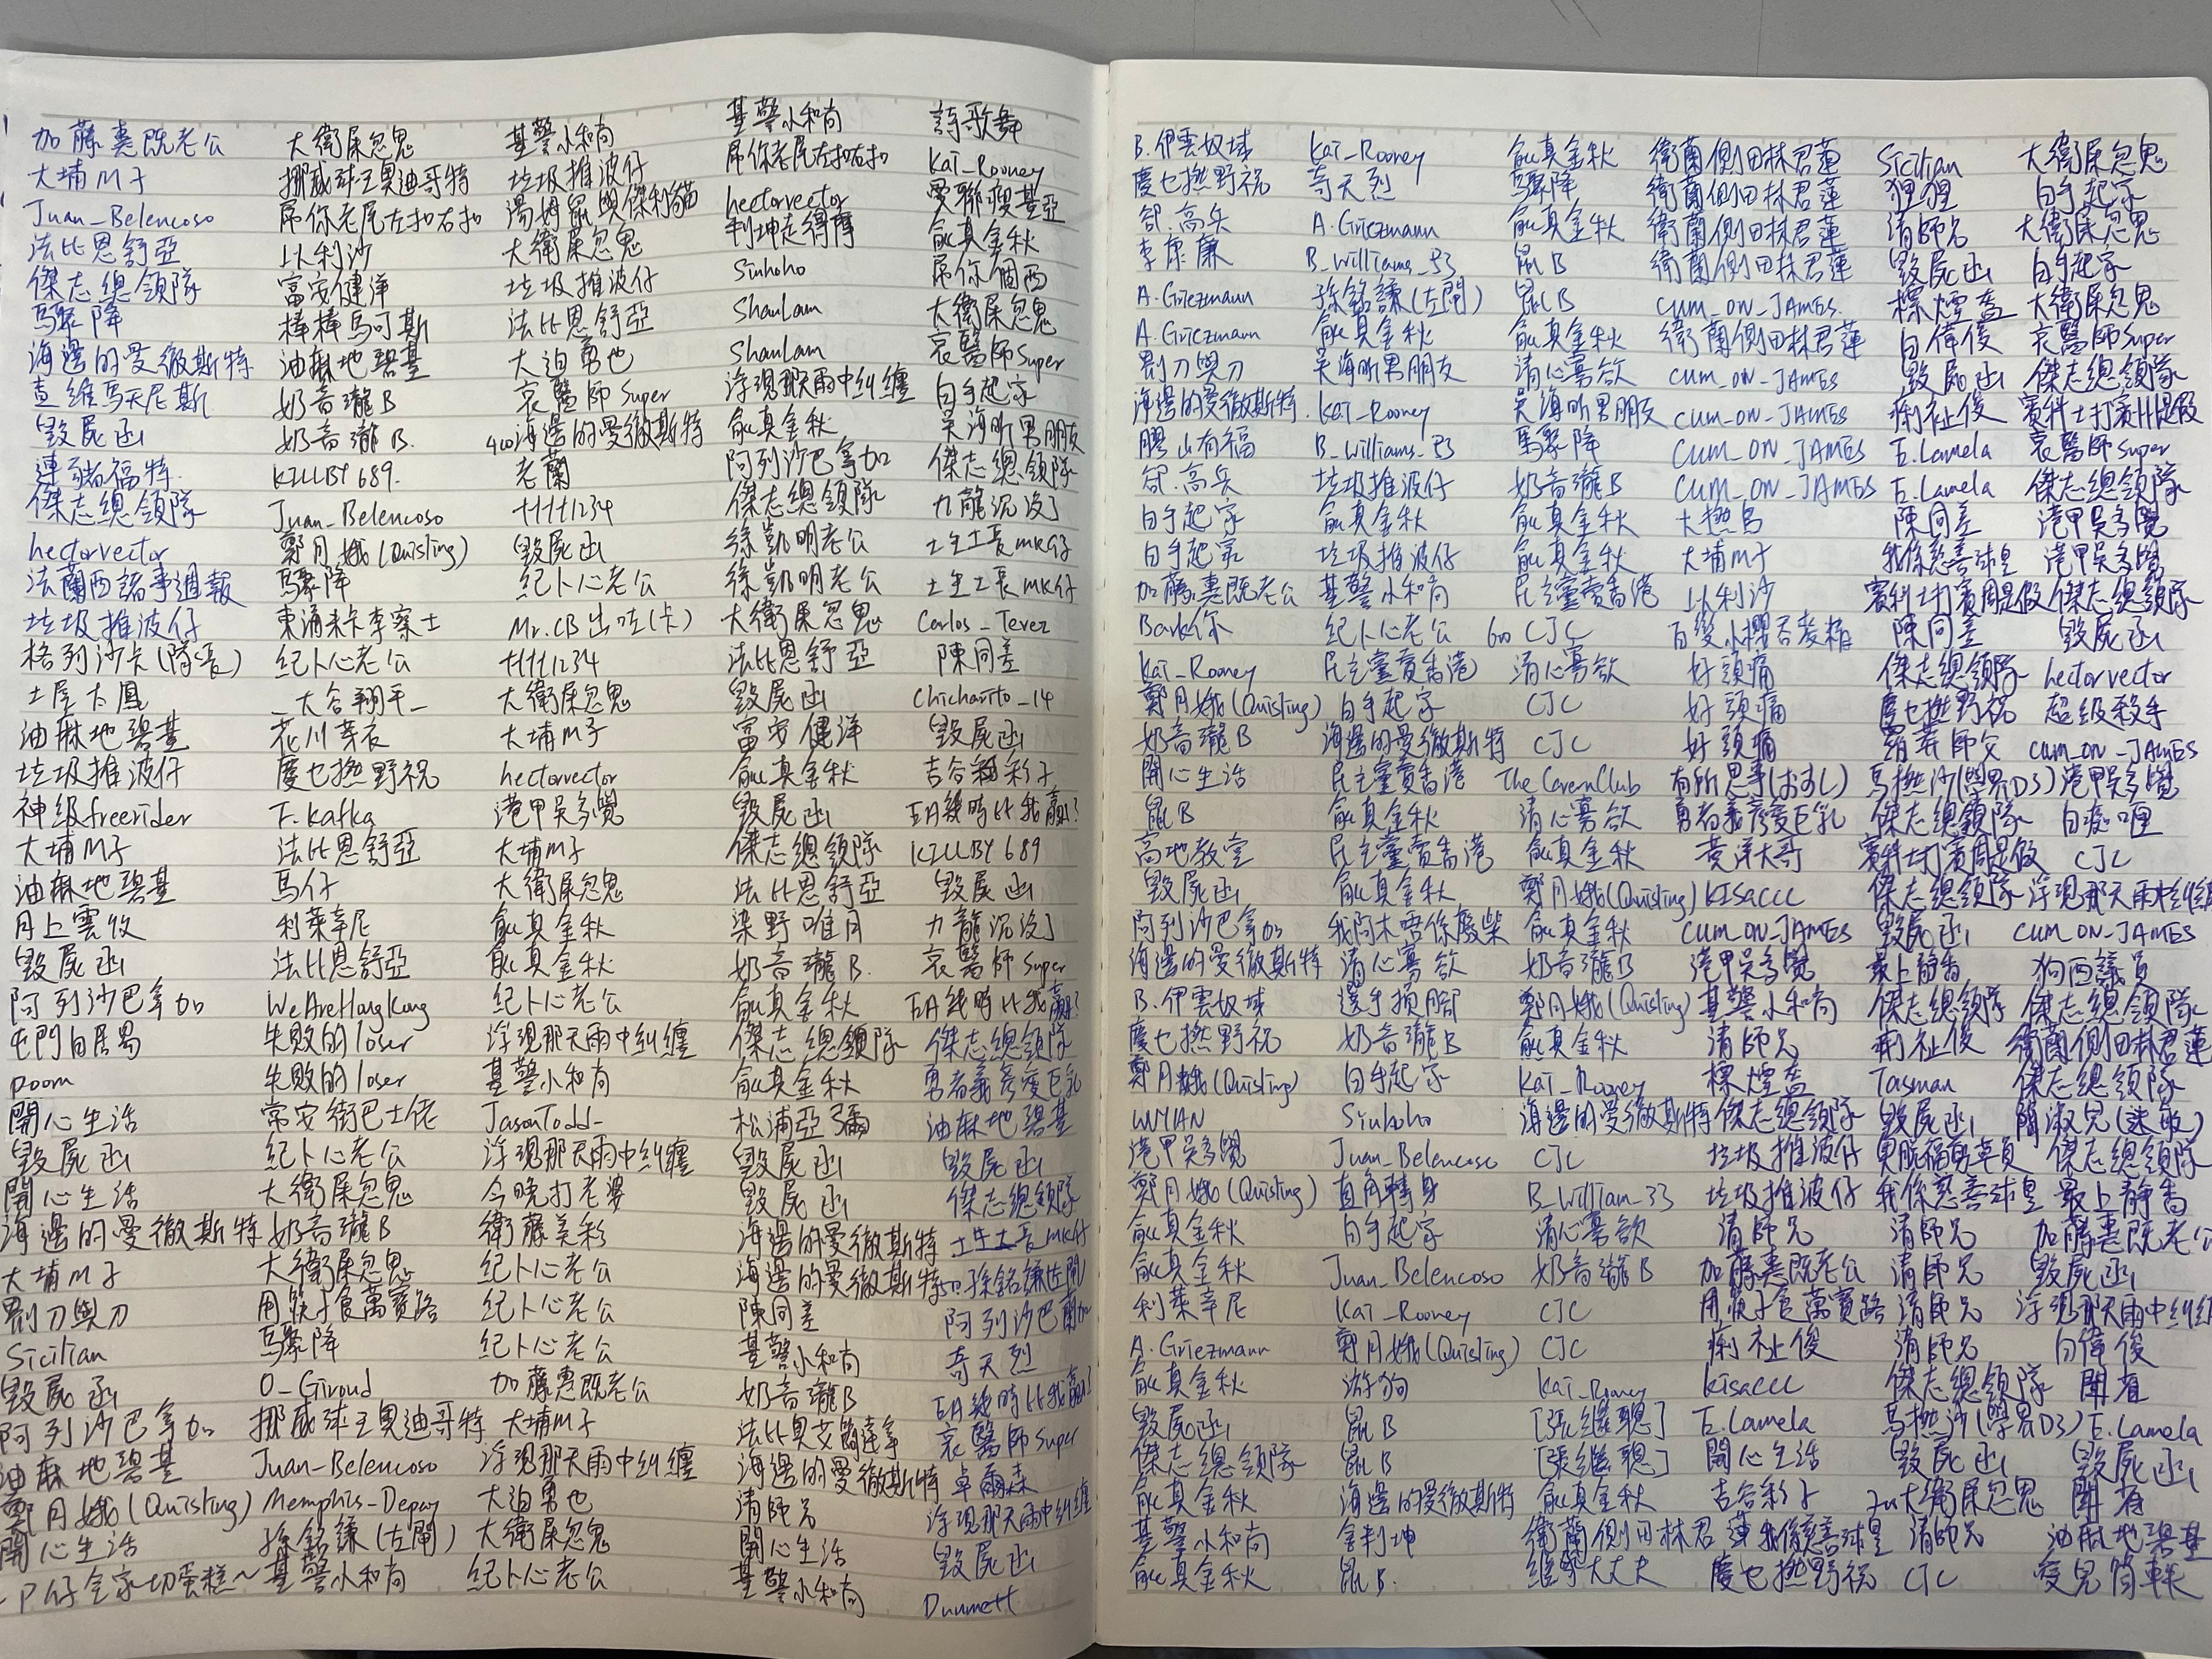 加藤惠既老公
大埔M子
Juan_Belencoso
法比恩舒亞
傑志總領隊
馬聚降
海邊的曼徹斯特
查維馬天尼斯
毀屍函
連豬福特
傑志總領隊
hectorvector
法蘭西諸事週報
垃圾推波仔
格列沙卡(隊長)
土屋太鳳
油麻地碧基
垃圾推波仔
神級freerider
大埔M子
油麻地碧基
月上雲收
毀屍函
阿列沙巴拿加
屯門白居易
poom
開心生活
毀屍函
開心生活
海邊的曼徹斯特
大埔M子
割刀與刀
Sicilian
毀屍函
阿列沙巴拿加
油麻地碧基
鄭月娥(Quisling)
開心生活
P仔全家切蛋糕~
大衛屎忽鬼
挪威球王奧迪哥特
屌你老尾左扣右扣
以利沙
富安健洋
棒棒馬可斯
油麻地碧基
奶音瓏B
奶音瓏B.
KILLBY689.
Juan_Belencoso
鄭月娥(Quisling)
馬聚降
東涌朱卡李察士
紀卜心老公
_大谷翔平_
花川芽衣
慶乜撚野祝
F.Kafka
法比恩舒亞
馬仔
利萊辛尼
法比恩舒亞
WeAreHongKong
失敗的loser
失敗的loser
常安街巴士佬
紀卜心老公
大衛屎忽鬼
奶音瓏B
大衛屎忽鬼
用筷子食萬寶路
馬聚降
O_Giroud
挪威球王奧迪哥特
Juan_Belencoso
Memphis_Depay
孫銘謙(左閘)
基警小和尚
基警小和尚
垃圾推波仔
湯姆鼠與傑利貓
大衛屎忽鬼
垃圾推波仔
法比恩舒亞
大迫勇也
哀醫師Super
400海邊的曼徹斯特
老蘭
tttt1234
毀屍函
紀卜心老公
Mr.CB出咗(卡)
tttt1234
大衛屎忽鬼
大埔M子
hectorvector
港甲吳多覺
大埔M子
大衛屎忽鬼
俞真金秋
俞真金秋
紀卜心老公
浮現那天雨中糾纏
基警小和尚
JasonTodd_
浮現那天雨中糾纏
今晚打老婆
衛藤美彩
紀卜心老公
紀卜心老公
紀卜心老公
加藤惠既老公
大埔M子
浮現那天雨中糾纏
大迫勇也
大衛屎忽鬼
紀卜心老公
基警小和尚
屌你老尾左扣右扣
hectorvector
利坤走得摩
Siuhoho
ShanLam
ShanLam
浮現那天雨中糾纏
俞真金秋
阿列沙巴拿加
傑志總領隊
徐凱明老公
徐凱明老公
大衛屎忽鬼
法比恩舒亞
毀屍函
富安健洋
俞真金秋
毀屍函
傑志總領隊
法比恩舒亞
染野唯月
奶音瓏B.
俞真金秋
傑志總領隊
俞真金秋
松浦亞彌
毀屍函
毀屍函
海邊的曼徹斯特
海邊的曼徹斯特
陳同差
基警小和尚
奶音瓏B
法比奧艾簡達拿
海邊的曼徹斯特
清師兄
開心生活
基警小和尚
詩歌舞
Kai_Rooney
曼聯瘦基亞
俞真金秋
屌你個西
大衛屎忽鬼
哀醫師Super
白手起家
吴海昕男朋友
傑志總領隊
九龍沉沒了
土生土長MK仔
土生土長MK仔
Carlos_Tevez
陳同差
Chicharito_14
毀屍函
吉谷彩子
EA幾時比我贏?
KILLBY689
毀屍函
九龍沉沒了
哀醫師Super
EA幾時比我贏?
傑志總領隊
勇者義彥愛巨乳
油麻地碧基
毀屍函
傑志總領隊
土生土長MK仔
500孫銘謙(左閘)
阿列沙巴拿加
奇天烈
EA幾時比我贏?
哀醫師Super
卓爾森
浮現那天雨中糾纏
毀屍函
Dummett
B.伊雲奴域
慶乜撚野祝
郤.高兵
李康廉
A.Griezmann
A.Griezmann
割刀與刀
海邊的曼徹斯特.
膠出有福
郤.高兵
白手起家
白手起家
加藤惠既老公
Bark你
Kai_Rooney
鄭月娥(Quisling)
奶音瓏B
開心生活
鼠B
高地教室
毀屍函
阿列沙巴拿加
海邊的曼徹斯特
B.伊雲奴域
慶乜撚野祝
鄭月娥(Quisling)
WYIAN
港甲吳多覺
鄭月娥(Quisling)
俞真金秋
俞真金秋
利萊辛尼
A.Griezmann
俞真金秋
毀屍函
傑志總領隊
俞真金秋
基警小和尚
俞真金秋
Kai_Rooney
奇天烈
A.Griezmann
B_Williams_53
孫銘謙(左閘)
俞真金秋
吴海昕男朋友
Kai_Rooney
B_Williams_53
垃圾推波仔
俞真金秋
垃圾推波仔
基警小和尚
紀卜心老公
民主黨賣香港
白手起家
海邊的曼徹斯特
民主黨賣香港
俞真金秋
民主黨賣香港
俞真金秋
我阿木唔係廢柴
清心寡欲
選手損腳
奶音瓏B
白手起家
Siuhoho
Juan_Belencoso
直角轉身
白手起家
Juan_Belencoso
Kai_Rooney
鄭月娥(Quisling)
游狗
鼠B
鼠B
海邊的曼徹斯特
金判坤
鼠B.
俞真金秋
馬聚降
俞真金秋
鼠B
鼠B
俞真金秋
清心寡欲
吴海昕男朋友
馬聚降
奶音瓏B
俞真金秋
俞真金秋
民主黨賣香港
600 CJC
清心寡欲
CJC
CJC
The CavernClub
清心寡欲
俞真金秋
鄭月娥(Quisling)
俞真金秋
奶音瓏B
鄭月娥(Quisling)
俞真金秋
Kai_Rooney
海邊的曼徹斯特
CJC
B_William_33
清心寡欲
奶音瓏B
CJC
CJC
Kai_Rooney
[張繼聰]
[張繼聰]
俞真金秋
衛蘭側田林君蓮
繼學大丈夫
衛蘭側田林君蓮
衛蘭側田林君蓮
衛蘭側田林君蓮
衛蘭側田林君蓮
CUM_ON_JAMES.
衛蘭側田林君蓮
CUM_ON_JAMES
CUM_ON_JAMES
CUM_ON_JAMES
CUM_ON_JAMES
大撚鳥
大埔M子
以利沙
百變小櫻吞麥椎
好頭痛
好頭痛
好頭痛
有所思事(おすし)
勇者義彥愛巨乳
麥洋大哥
KISACCC
CUM_ON_JAMES
港甲吳多覺
基警小和尚
清師兄
標煙盒
傑志總領隊
垃圾推波仔
垃圾推波仔
清師兄
加藤惠既老公
用筷子食萬寶路
痢祉俊
KISACCC
E.Lamela
開心生活
吉谷彩子
我係慈善球星
慶乜撚野祝
Sicilian
狸狸
清師兄
毀屍函
標煙盒
白偉俊
毀屍函
痢祉俊
E.Lamela
E.Lamela
陳同差
我係慈善球星
賓科士打賓周是假
陳同差
傑志總領隊
慶乜撚野祝
羅莽師父
馬撚沙(學界D3)
傑志總領隊
賓科士打賓周是假
傑志總領隊
毀屍函
最上靜香
傑志總領隊
痢祉俊
Tasman
毀屍函
東脫福勇草頁
我係慈善球星
清師兄
清師兄
清師兄
清師兄
傑志總領隊
馬撚沙(學界D3)
毀屍函
大衛屎忽鬼
清師兄
CJC
大衛屎忽鬼
白手起家
大衛屎忽鬼
白手起家
大衛屎忽鬼
哀醫師Super
傑志總領隊
賓科士打賓州是假
哀醫師Super
傑志總領隊
港甲吳多覺
港甲吳多覺
傑志總領隊
毀屍函
hectorvector
超級殺手
CUM_ON_JAMES
港甲吳多覺
白痴喱
CJC
浮現那天雨中糾纏
CUM_ON_JAMES
狗西議員
傑志總領隊
衛蘭側田林君蓮
傑志總領隊
關淑兒(迷敬)
傑志總領隊
最上靜香
加藤惠既老公
毀屍函
浮現那天雨中糾纏
白偉俊
開着
E.Lamela
毀屍函
開着
油麻地碧基
愛兒筒軼